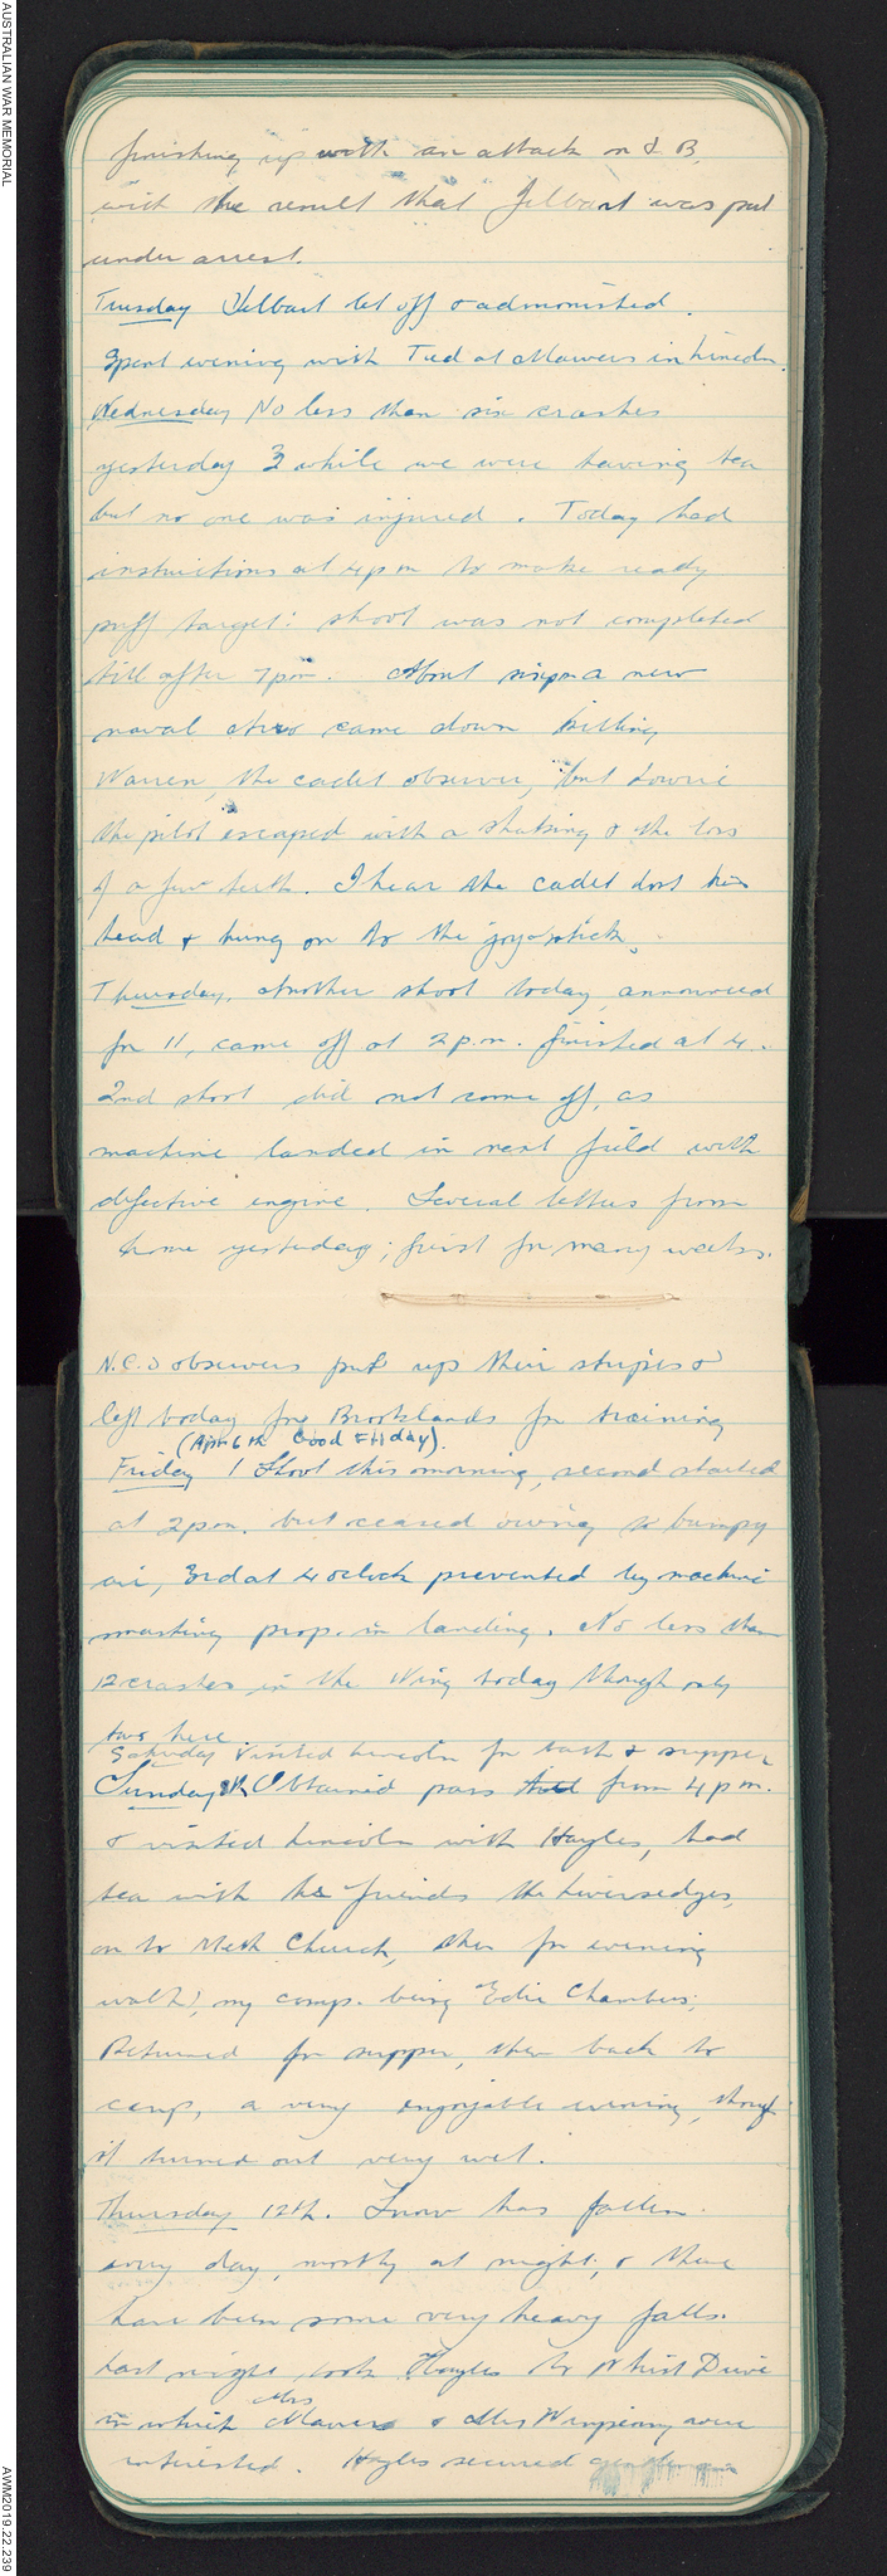 AUSTRALIAN WAR MEMORIAL
finishing up with an attack on J B,
with the result that Jelbart was put
under arrest.
Tuesday Jelbart let off & admonished.
Spent evening with Ted at Mawers in Lincoln.
Wednesday No less than six crashes
yesterday 3 while we were having tea
but no one was injured. Today had
instructions at 4 pm to make ready
puff target: shoot was not completed
till after 7 pm. About a new
naval Avro came down killing
Warren, the cadet observer, but Lowrie
the pilot escaped with a shaking & the loss
of a few teeth. I hear the cadet lost his
head & hung on to the joy-stick.
Thursday, Another shoot today announced
for 11, came off at 2 p.m. finished at 4.
2nd shoot did not come off, as
machine landed in next field with
defective engine. Several letters from
home yesterday; first for many weeks.
N.C.O observers put up their stripes &
left today for Brooklands for training
(Apr 6th Good Friday).
Friday 1 Shoot this morning, second started
at 2 pm. but ceased owing to bumpy
air, 3rd at 4 oclock prevented by machine
smashing prop. in landing. No less than
12 crashes in the Wing today though only
two here.
Saturday Visited Lincoln for bath & supper
Sunday 8th Obtained pass from 4 p m.
& visited Lincoln with Hayles, had
tea with his friends the Liversedges,
on to Meth Church, then for evening
walk, my comp. being Edie Chambers.
Returned for supper, then back to
camp, a very enjoyable evening, though
it turned out very wet.
Thursday 12th. Snow has fallen
every day, mostly at night, & there
have been some very heavy falls.
Last night took Hayles to Whist Drive
in which Mrs Mawer & Mrs Winpenny were
interested. Hayles secured
AWM2019.22.239